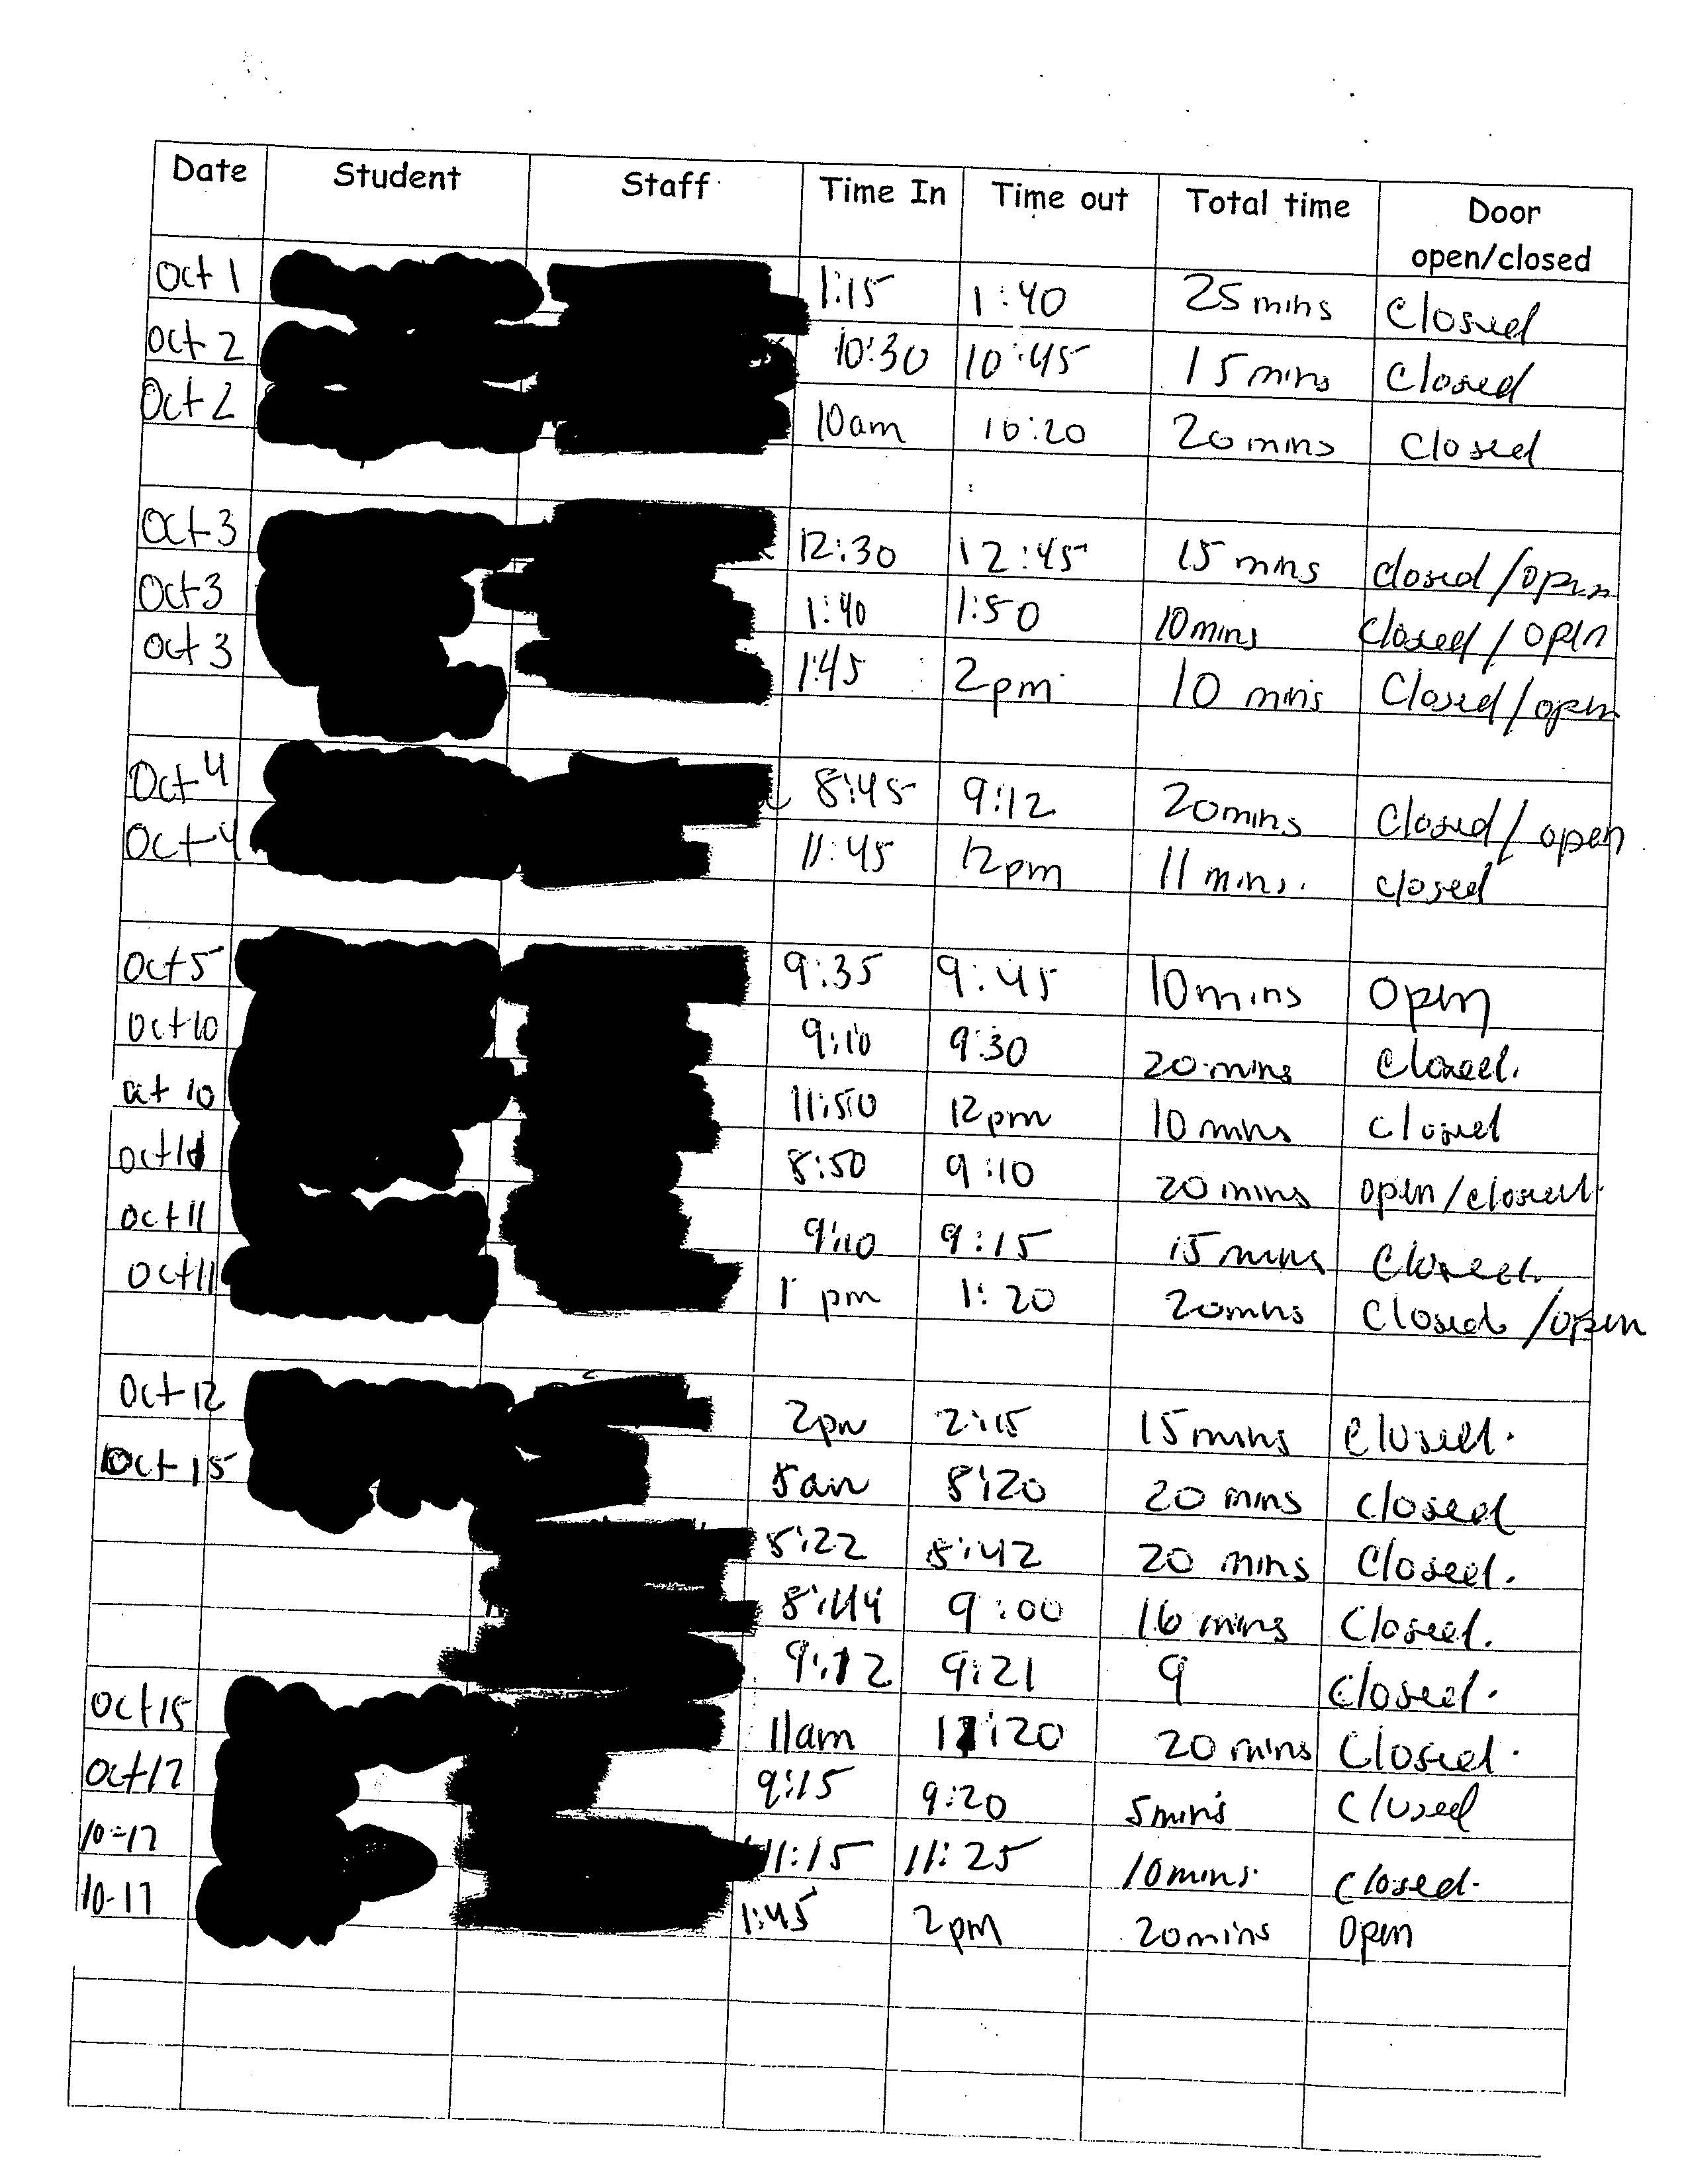 Date Student Staff Time In Time out Total time Door open/closed
Oct 1 1:15 1:40 25 mins Closed
Oct 2 10:30 10:45 15 mins Closed
Oct 2 10am 10:20 20 mins Closed
Oct 3 12:30 12:45 15 mins closed/open
Oct 3 1:40 1:50 10 mins closed/open
Oct 3 1:45 2pm 10 mins Closed/open
Oct 4 8:45 9:12 20 mins Closed/open
Oct 4 11:45 12pm 11 mins. closed
Oct 5 9:35 9:45 10 mins Open
Oct 10 9:10 9:30 20 mins Closed.
Oct 10 11:50 12pm 10 mins closed
8:50 9:10 20 mins open/closed.
Oct 11 9:10 9:15 15 mins Closed.
Oct 11 1 pm 1:20 20 mins Closed/open
Oct 12 2pm 2:15 15 mins Closed.
Oct 15 8am 8:20 20 mins Closed
8:22 8:42 20 mins Closed.
8:44 9:00 16 mins Closed.
9:12 9:21 9 Closed.
Oct 15 11am 11:20 20 mins Closed.
Oct 17 9:15 9:20 5 mins Closed
10-17 11:15 11:25 10 mins. Closed.
10-17 1:45 2pm 20 mins Open